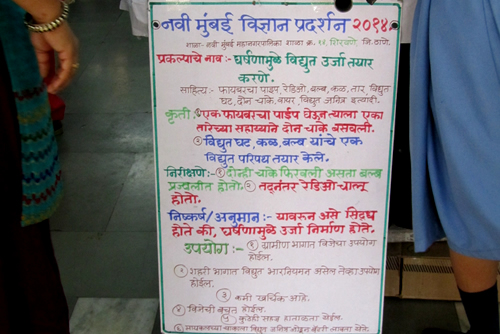 नवी मुंबई विज्ञान प्रदर्शन २०१४
शाळा- नवी मुंबई महानगरपालिका शाळा क्र. १४, शिरवणे, जि. ठाणे.
प्रकल्पाचे नाव :- घर्षणामुळे विद्युत उर्जा तयार
करणे.
साहित्य:- फायबरचा पाइप, रेडिओ, बल्ब, कळ, तार, विद्युत
घट, दोन चाके, वायर विद्युत जनित्र इत्यादी.
कृती :- ① एक फायबरचा पाईप घेऊन त्याला एका
तारेच्या सहाय्याने दोन चाके बसवली.
② विद्युत घट, कळ, बल्ब यांचे एक
विद्युत परिपथ तयार केले.
निरीक्षण:- ① दोन्ही चाके फिरवली असता बल्ब
प्रज्वलीत होतो. ② तद्नंतर रेडिओ चालू
होतो.
निष्कर्ष/अनुमान :- यावरुन असे सिद्ध
होते की, घर्षणामुळे उर्जा निर्माण होते.
उपयोग :- ① ग्रामीण भागात विजेचा उपयोग
होईल.
② शहरी भागात विद्युत भारनियमन असेल तेव्हा उपयोग
होईल.
③ कमी खर्चिक आहे.
④ विजेची बचत होईल.
⑤ कुठेही सहज हाताळता येईल.